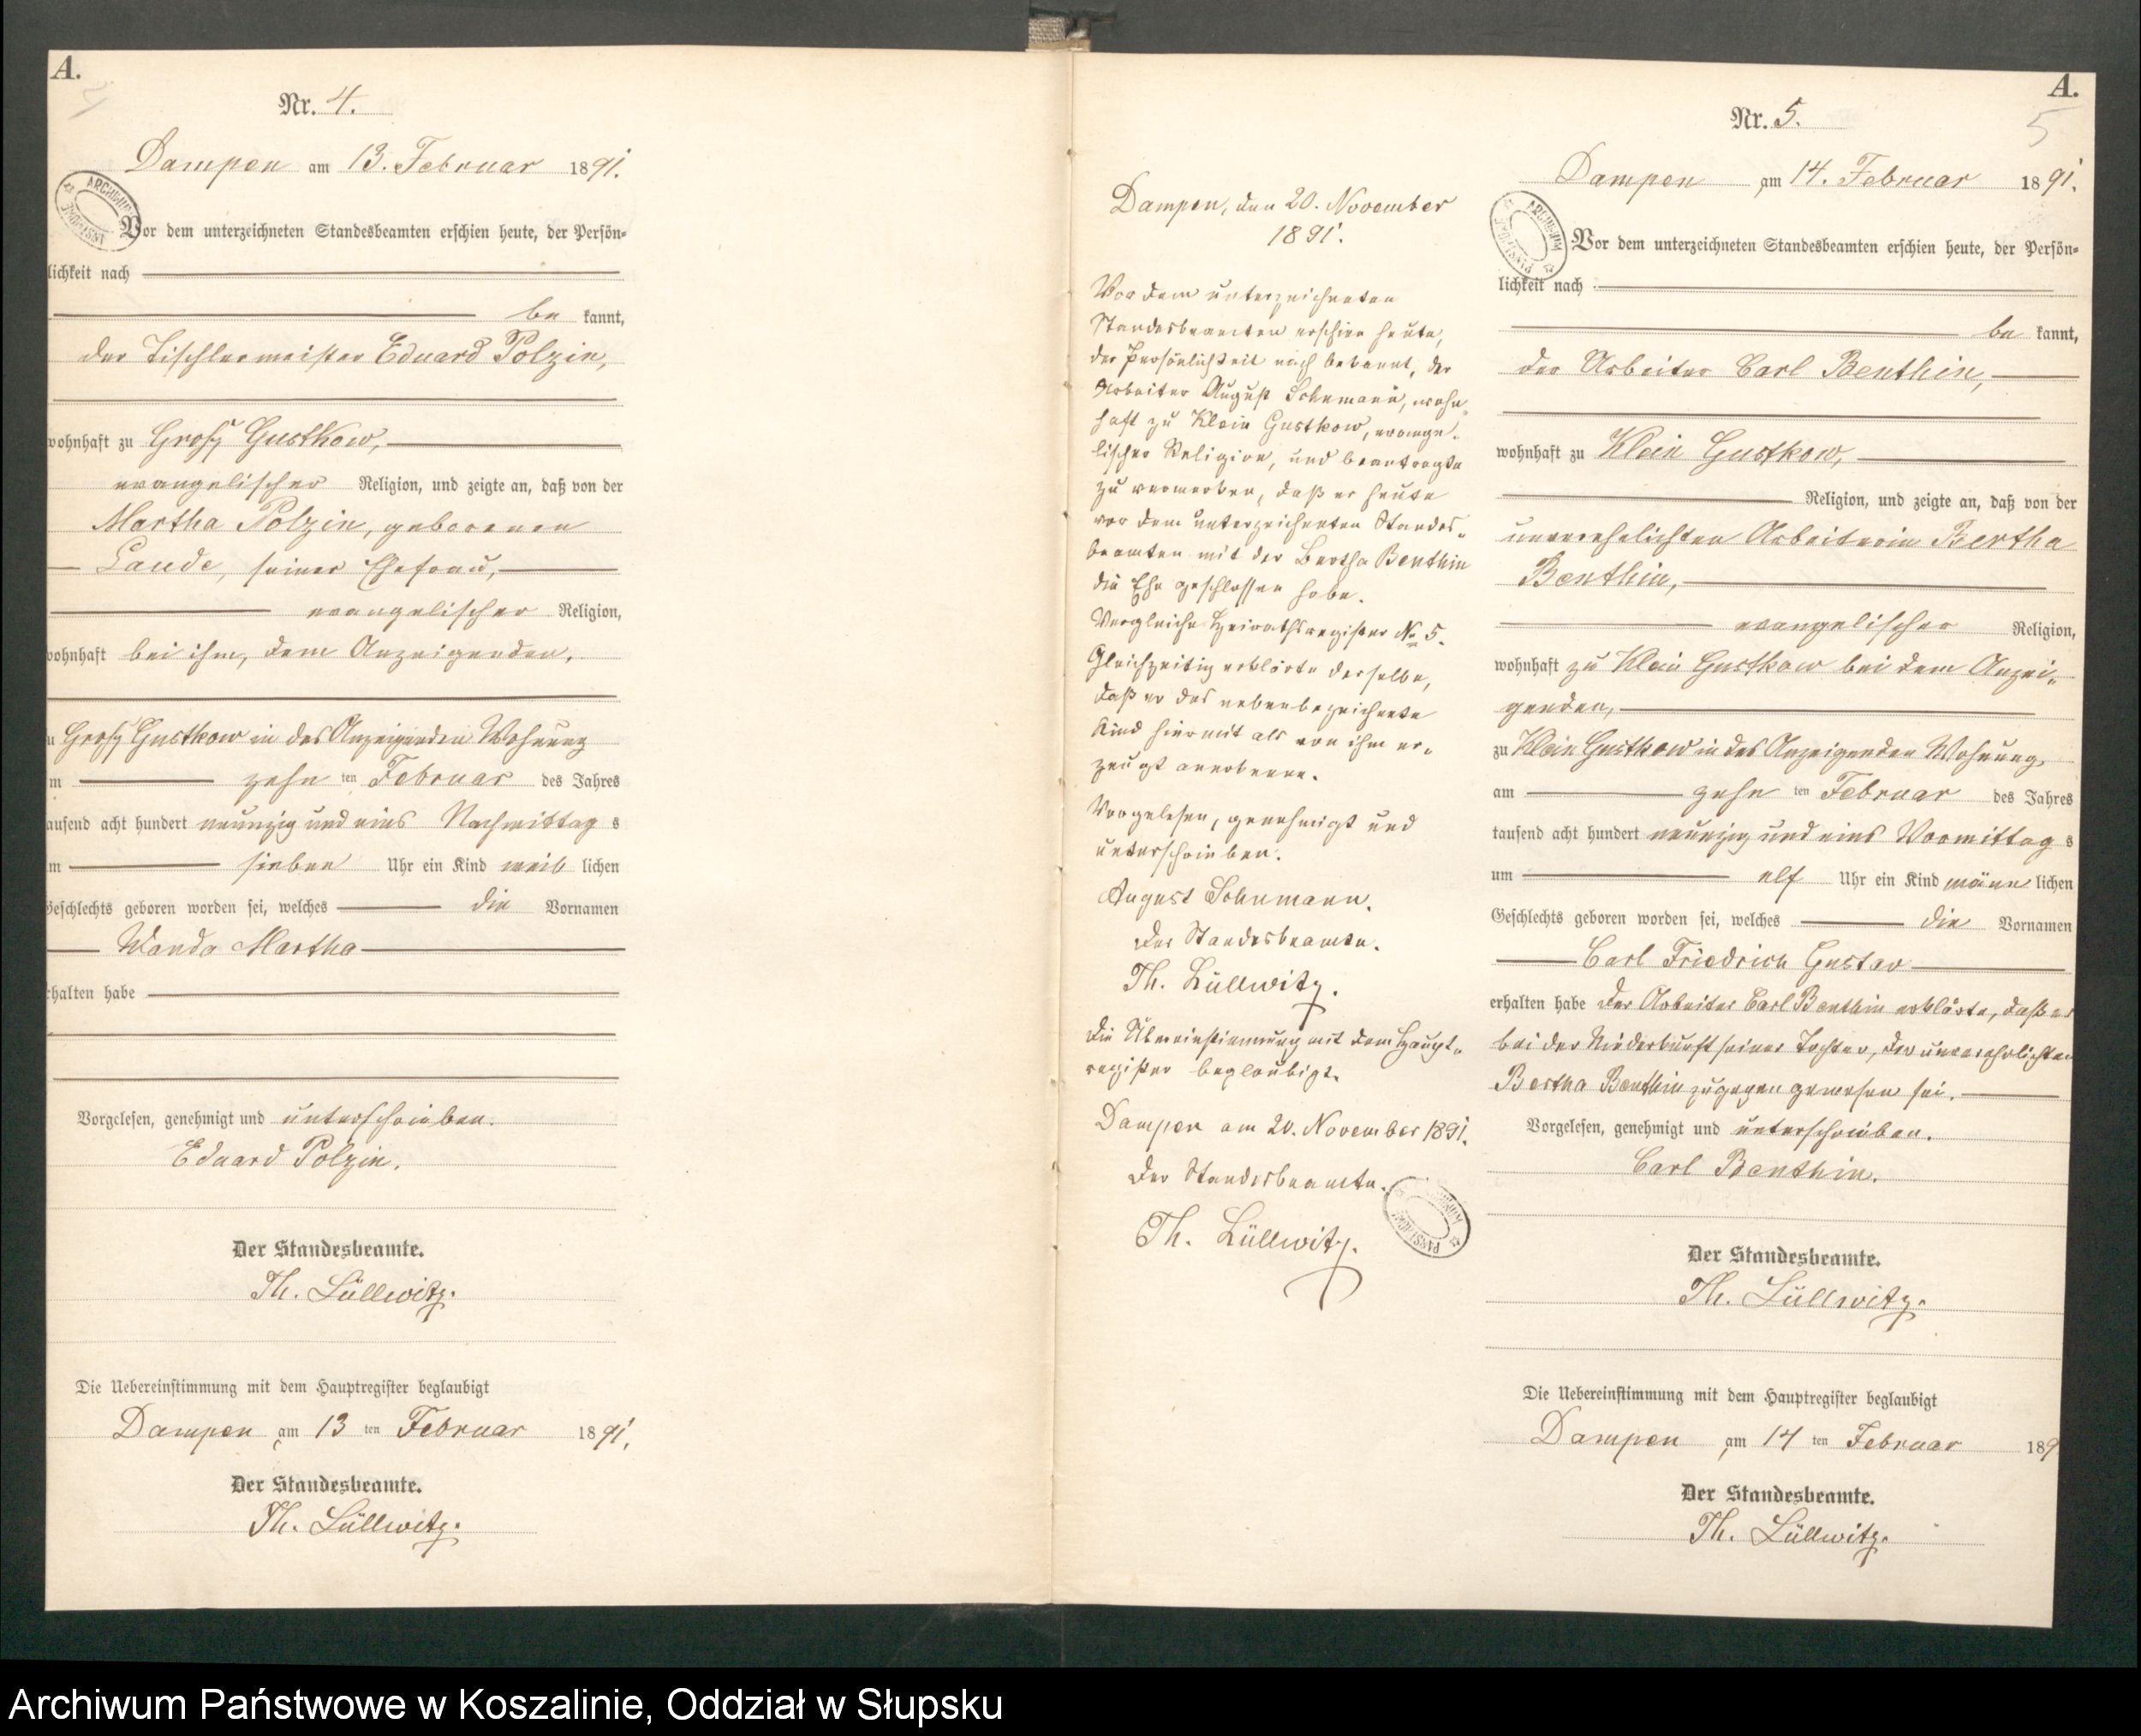 A.
Nr. 4.
Dampen am 13. Februar 1891.
Vor dem unterzeichneten Standesbeamten erschien heute, der Persön-
lichkeit nach
be kannt,
der Tischlermeister Eduard Polzin,
wohnhaft zu Groß Gustkow,
evangelischer Religion, und zeigte an, daß von der
Martha Polzin, geborenen
Laude, seiner Ehefrau,
evangelischer Religion,
wohnhaft bei ihm, dem Anzeigenden,
u Groß Gustkow in des Anzeigenden Wohnung
m zehn ten Februar des Jahres
ausend acht hundert neunzig und eins Nachmittag s
m sieben Uhr ein Kind weib lichen
Geschlechts geboren worden sei, welches die Vornamen
Wanda Martha
rhalten habe
Vorgelesen, genehmigt und unterschrieben.
Eduard Polzin.
Der Standesbeamte.
Th. Lüllwitz.
Die Uebereinstimmung mit dem Hauptregister beglaubigt
Dampen am 13 ten Februar 1891.
Der Standesbeamte.
Th. Lüllwitz.
Dampen, den 20. November
1891.
Vor dem unterzeichneten
Standesbeamten erschien heute,
der Persönlichkeit nach bekannt, der
Arbeiter August Schumann, wohn-
haft zu Klein Gustkow, evange-
lischer Religion, und beantragte
zu vermerken, daß er heute
vor dem unterzeichneten Standes-
beamten mit der Bertha Benthin
die Ehe geschlossen habe.
Vergleiche Heirathsregister No 5.
Gleichzeitig erklärte derselbe,
daß er das nebenbezeichnete
Kind hiermit als von ihm er-
zeugt anerkenne.
Vorgelesen, genehmigt und
unterschrieben.
August Schumann.
Der Standesbeamte.
Th. Lüllwitz.
Die Übereinstimmung mit dem Haupt-
register beglaubigt.
Dampen am 20. November 1891.
Der Standesbeamte.
Th. Lüllwitz.
A.
5
Nr. 5.
Dampen am 14. Februar 1891.
Vor dem unterzeichneten Standesbeamten erschien heute, der Persön-
lichkeit nach
be kannt,
der Arbeiter Carl Benthin,
wohnhaft zu Klein Gustkow,
Religion, und zeigte an, daß von der
unverehelichten Arbeiterin Bertha
Benthin,
evangelischer Religion,
wohnhaft zu Klein Gustkow bei dem Anzei-
genden,
zu Klein Gustkow in des Anzeigenden Wohnung,
am zehn ten Februar des Jahres
tausend acht hundert neunzig und eins Vormittag s
um elf Uhr ein Kind männ lichen
Geschlechts geboren worden sei, welches die Vornamen
Carl Friedrich Gustav
erhalten habe Der Arbeiter Carl Benthin erklärte, daß er
bei der Niederkunft seiner Tochter, der unverehelichten
Bertha Benthin zugegen gewesen sei.
Vorgelesen, genehmigt und unterschrieben.
Carl Benthin.
Der Standesbeamte.
Th. Lüllwitz.
Die Uebereinstimmung mit dem Hauptregister beglaubigt
Dampen am 14 ten Februar 189
Der Standesbeamte.
Th. Lüllwitz.
Archiwum Państwowe w Koszalinie, Oddział w Słupsku